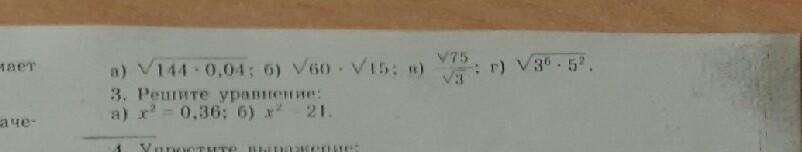 мает
а) √144 · 0,04; б) √60 · √15; в) √75/√3; г) √3⁶ · 5².
3. Решите уравнение:
а) x² = 0,36; б) x² = 21.
аче-
4. Упростите выражение: